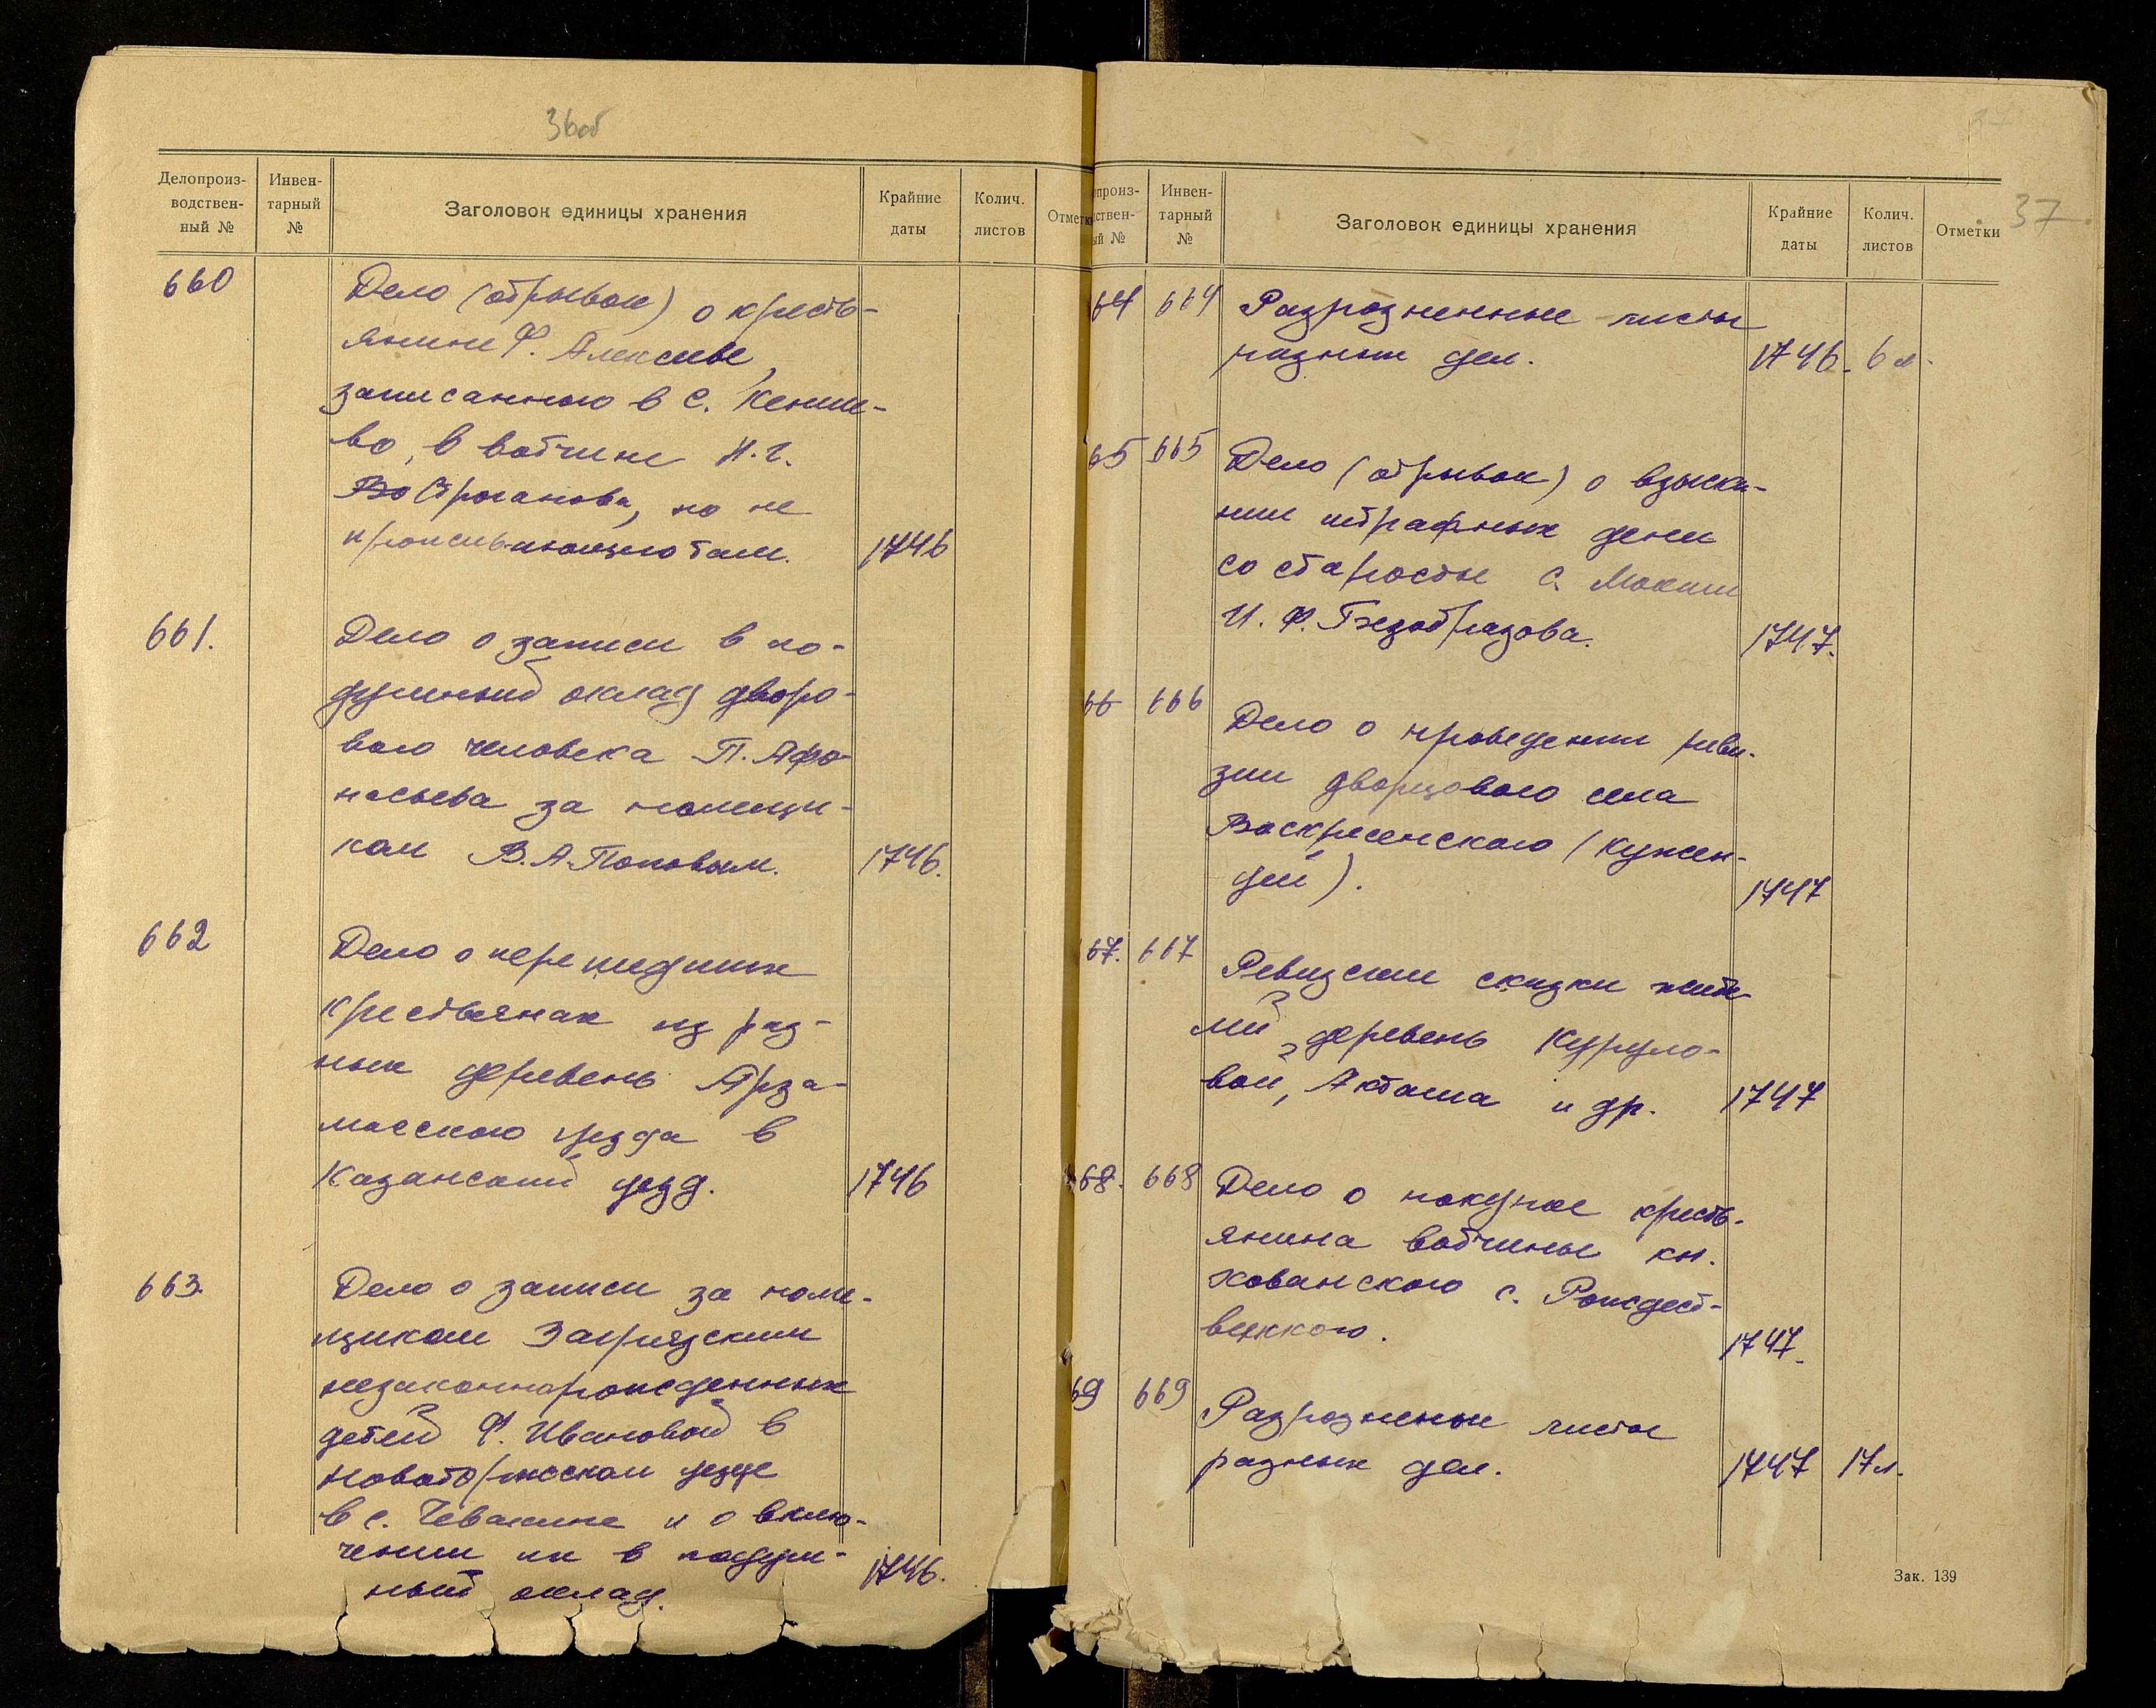 36об
Делопроиз-
водствен-
ный №
Инвен-
тарный
№
Заголовок единицы хранения
Крайние
даты
Колич.
листов
Отметки
660
Дело (отрывок) о кресть-
янине Ф. Алексееве,
записанного в с. Кенше-
во, в вотчине Н.Г.
Строганова, но не
проживающего там.
1746
661.
Дело о записи в по-
душный оклад дворо-
вого человека П. Афо-
насьева за помещи-
ком В.А. Поповым.
1746.
662
Дело о перешедших
крестьянах из раз-
ных деревень Арза-
масского уезда в
Казанский уезд.
1746
663.
Дело о записи за поме-
щиком Загрязским
незаконнорожденных
детей Ф. Ивановой в
Новоторжском уезде
в с. Чевакине и о вклю-
чении их в подуш-
ный оклад.
1746.
37
произ-
дствен-
ый №
Инвен-
тарный
№
Заголовок единицы хранения
Крайние
даты
Колич.
листов
Отметки
64 664
Разрозненные листы
разных дел.
1746. 6 л.
65 665
Дело (отрывок) о взыска-
нии штрафных денег
со старосты с. Мокши
И. Ф. Безобразова.
1747.
66 666
Дело о проведении реви-
зии дворцового села
Воскресенского (Кужен-
дей).
1747
67. 667
Ревизские сказки жите-
лей деревень Куруло-
вой, Акташа и др.
1747
68. 668
Дело о покупке кресть-
янина вотчины кн.
Хованского с. Рождест-
венкого.
1747.
69 669
Разрозненные листы
разных дел.
1747 17 л.
Зак. 139